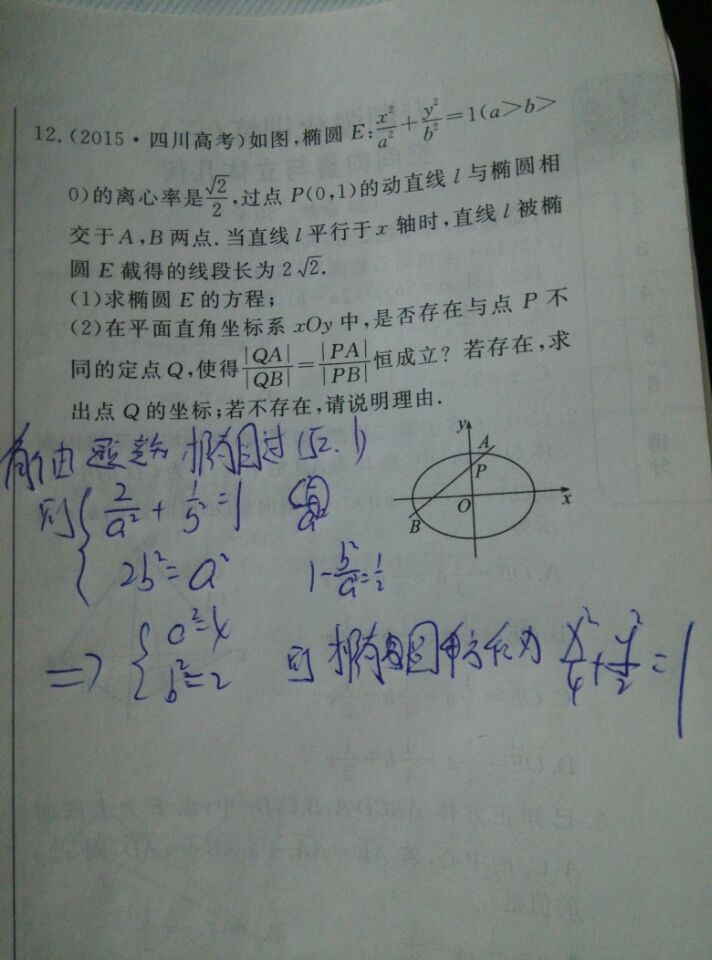 12.(2015·四川高考)如图,椭圆 E:x²/a²+y²/b²=1(a>b>
0)的离心率是√2/2,过点 P(0,1)的动直线 l 与椭圆相
交于 A,B 两点.当直线 l 平行于 x 轴时,直线 l 被椭
圆 E 截得的线段长为 2√2.
(1)求椭圆 E 的方程;
(2)在平面直角坐标系 xOy 中,是否存在与点 P 不
同的定点 Q,使得|QA|/|QB|=|PA|/|PB|恒成立?若存在,求
出点 Q 的坐标;若不存在,请说明理由.
y
A
P
O
x
B
由题意知 椭圆过(√2,1)
则 2/a²+1/b²=1
2b²=a² 1-b²/a²=1/2
=> a²=4
b²=2 则椭圆方程为 x²/4+y²/2=1